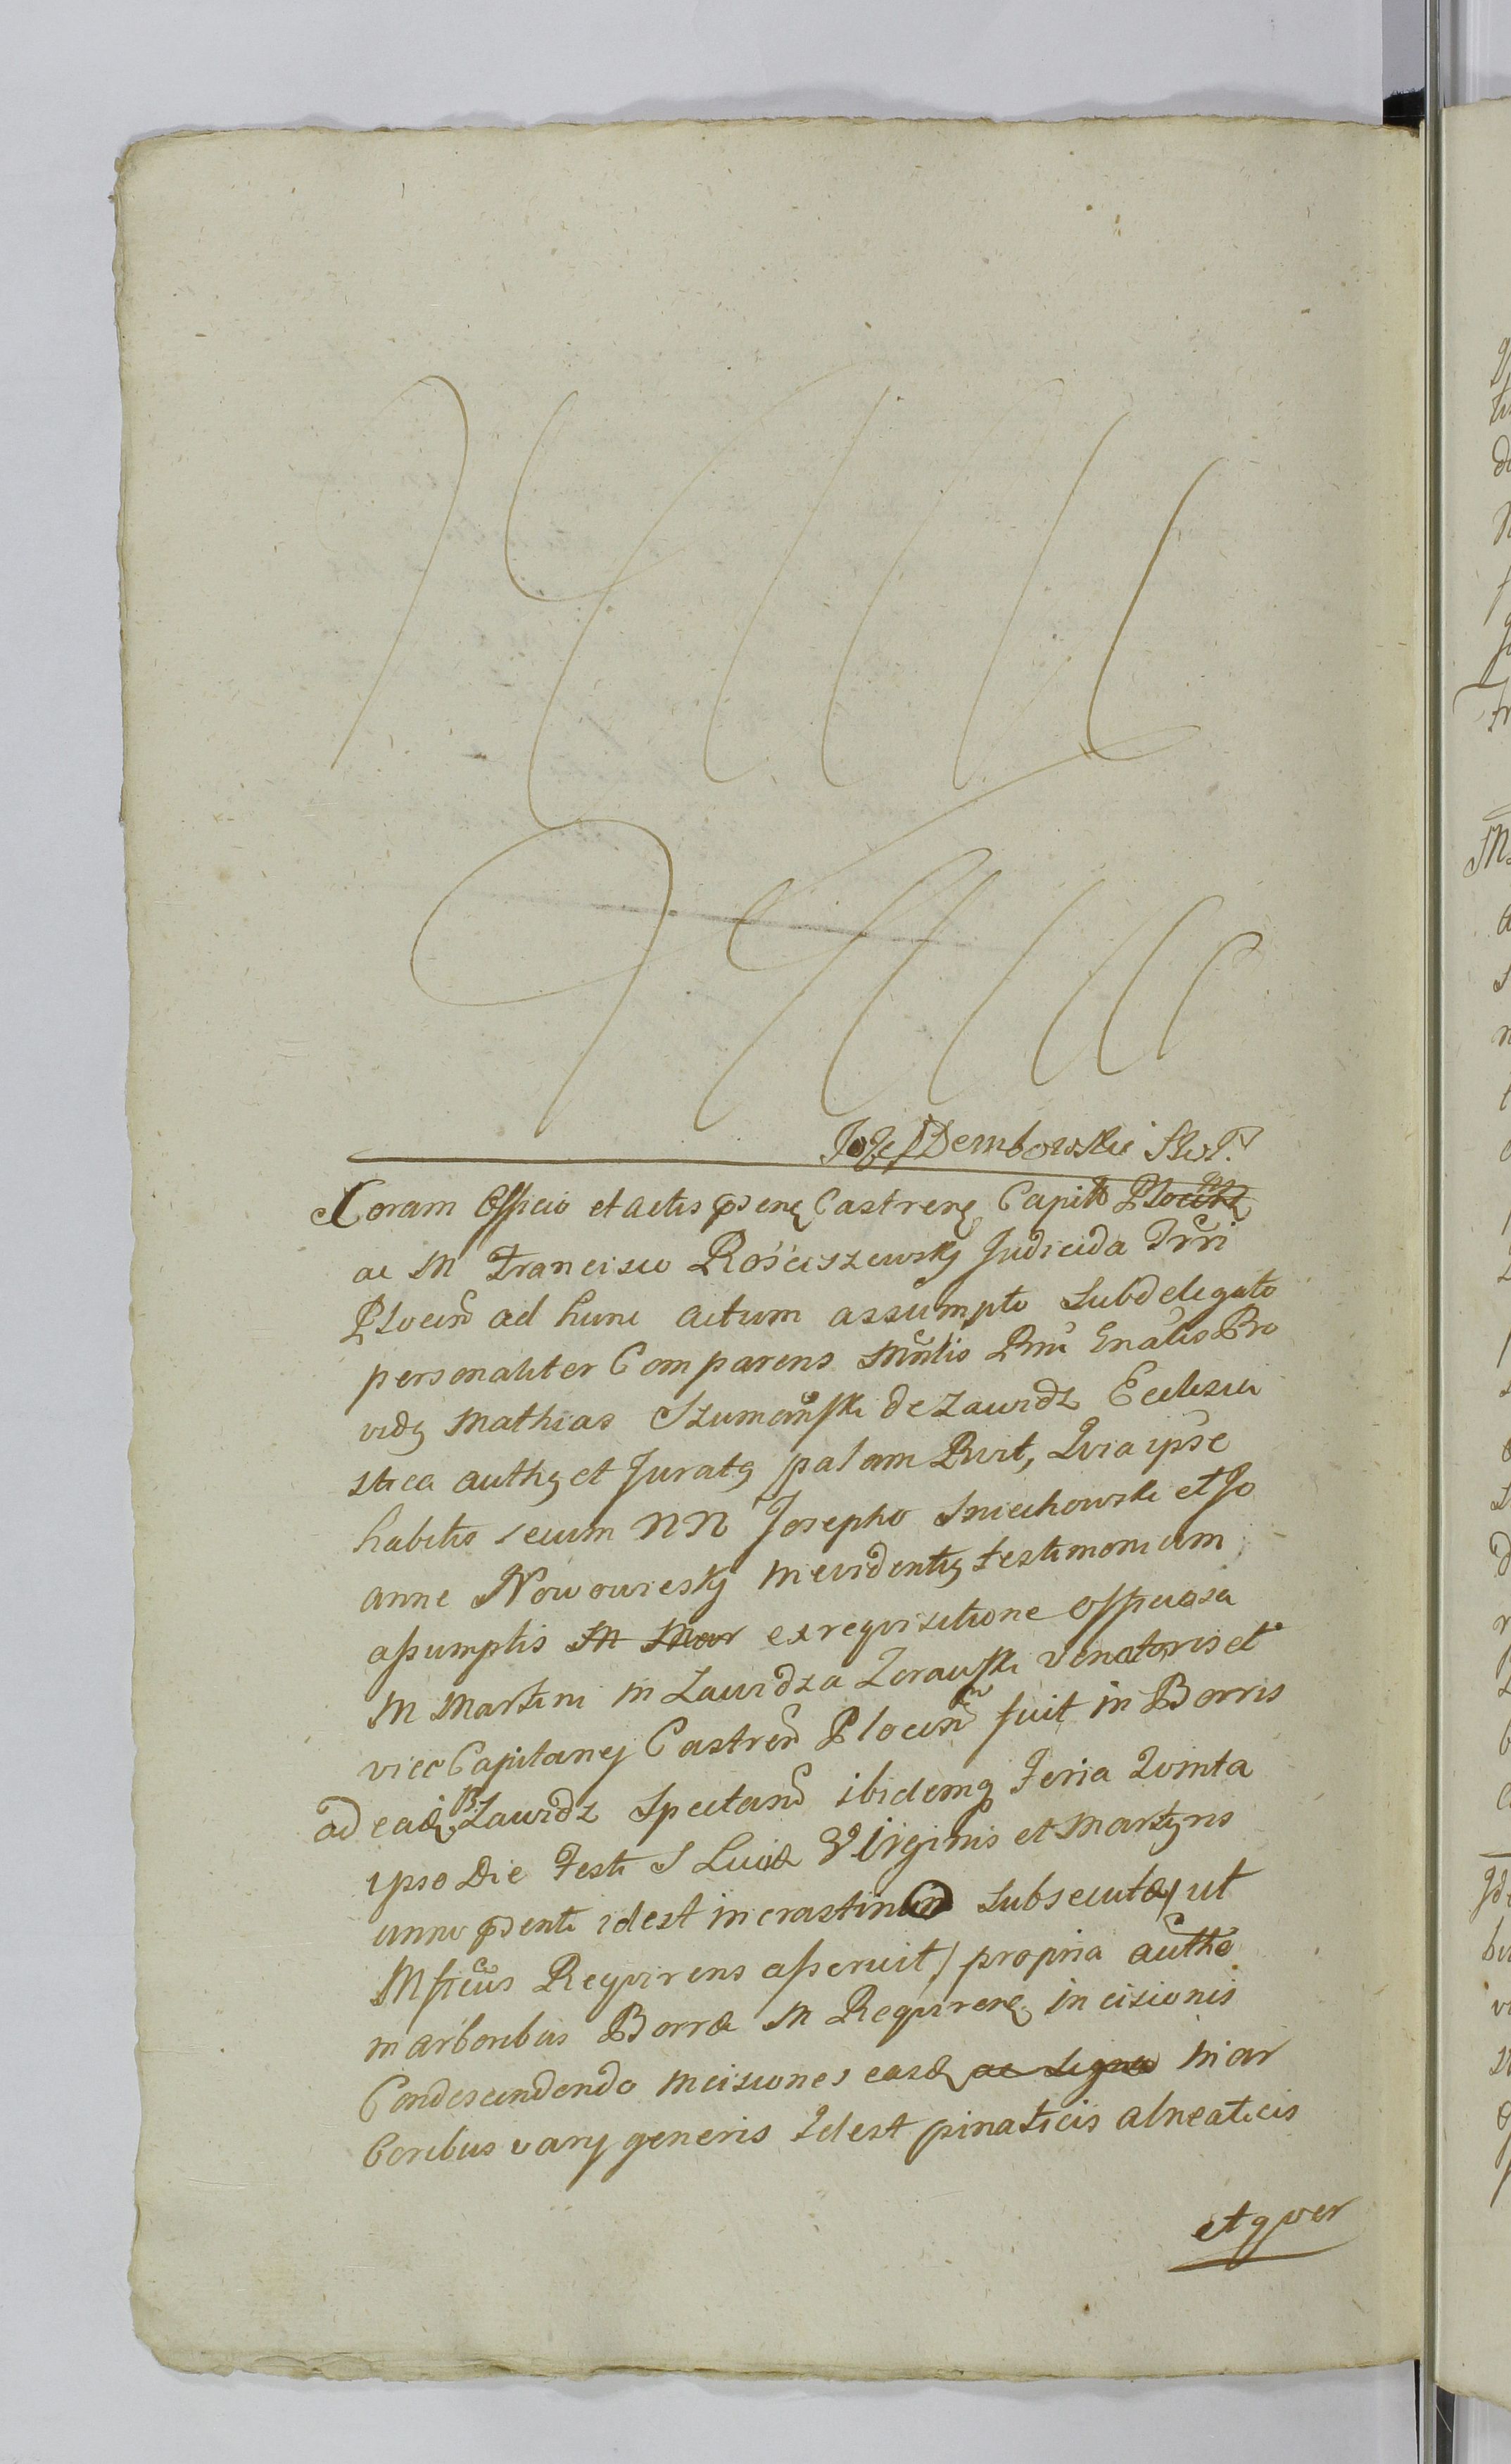 Jozef Dembowski
Coram Officio et actis pñtibꝫ Castrenꝫ Capitł Plocenꝫ
ac M Francisco Rościszewsky Judicida Trri
Plocen̄ ad hunc actum assumpto Subdelegato
personaliter Comparens Mñlis Rni Gnalis Pro
vidꝫ Mathias Szumański de Zawidz Ecclesia
stica authꝫ et Juratꝫ palam Rvit, Qvia ipse
habitis secum NN Josepho Smiechowski et Jo
anne Nowowiesky in evidentiꝫ testimonium
assumptis M Mar ex reqvisitione officiosa
M Martini in Zawidza Zorawski Venatoris et
vice Capitanej Castren̄ Plocen̄ fuit in Borris
ad eadꝫ B. Zawidz Spectan̄ ibidemqꝫ Feria Qvinta
ipso Die Festi S Luciæ Virginis et Martyris
anno pdenti idest in crastinum Subsecutæ/ ut
Mficus Reqvirens asseruit/ propria autho
in arboribus Borræ M Reqvirenꝫ incisionis
Condescendendo incisiones easdꝫ ac signa in ar
boribus varij generis Idest pinaticis alneaticis
et qver